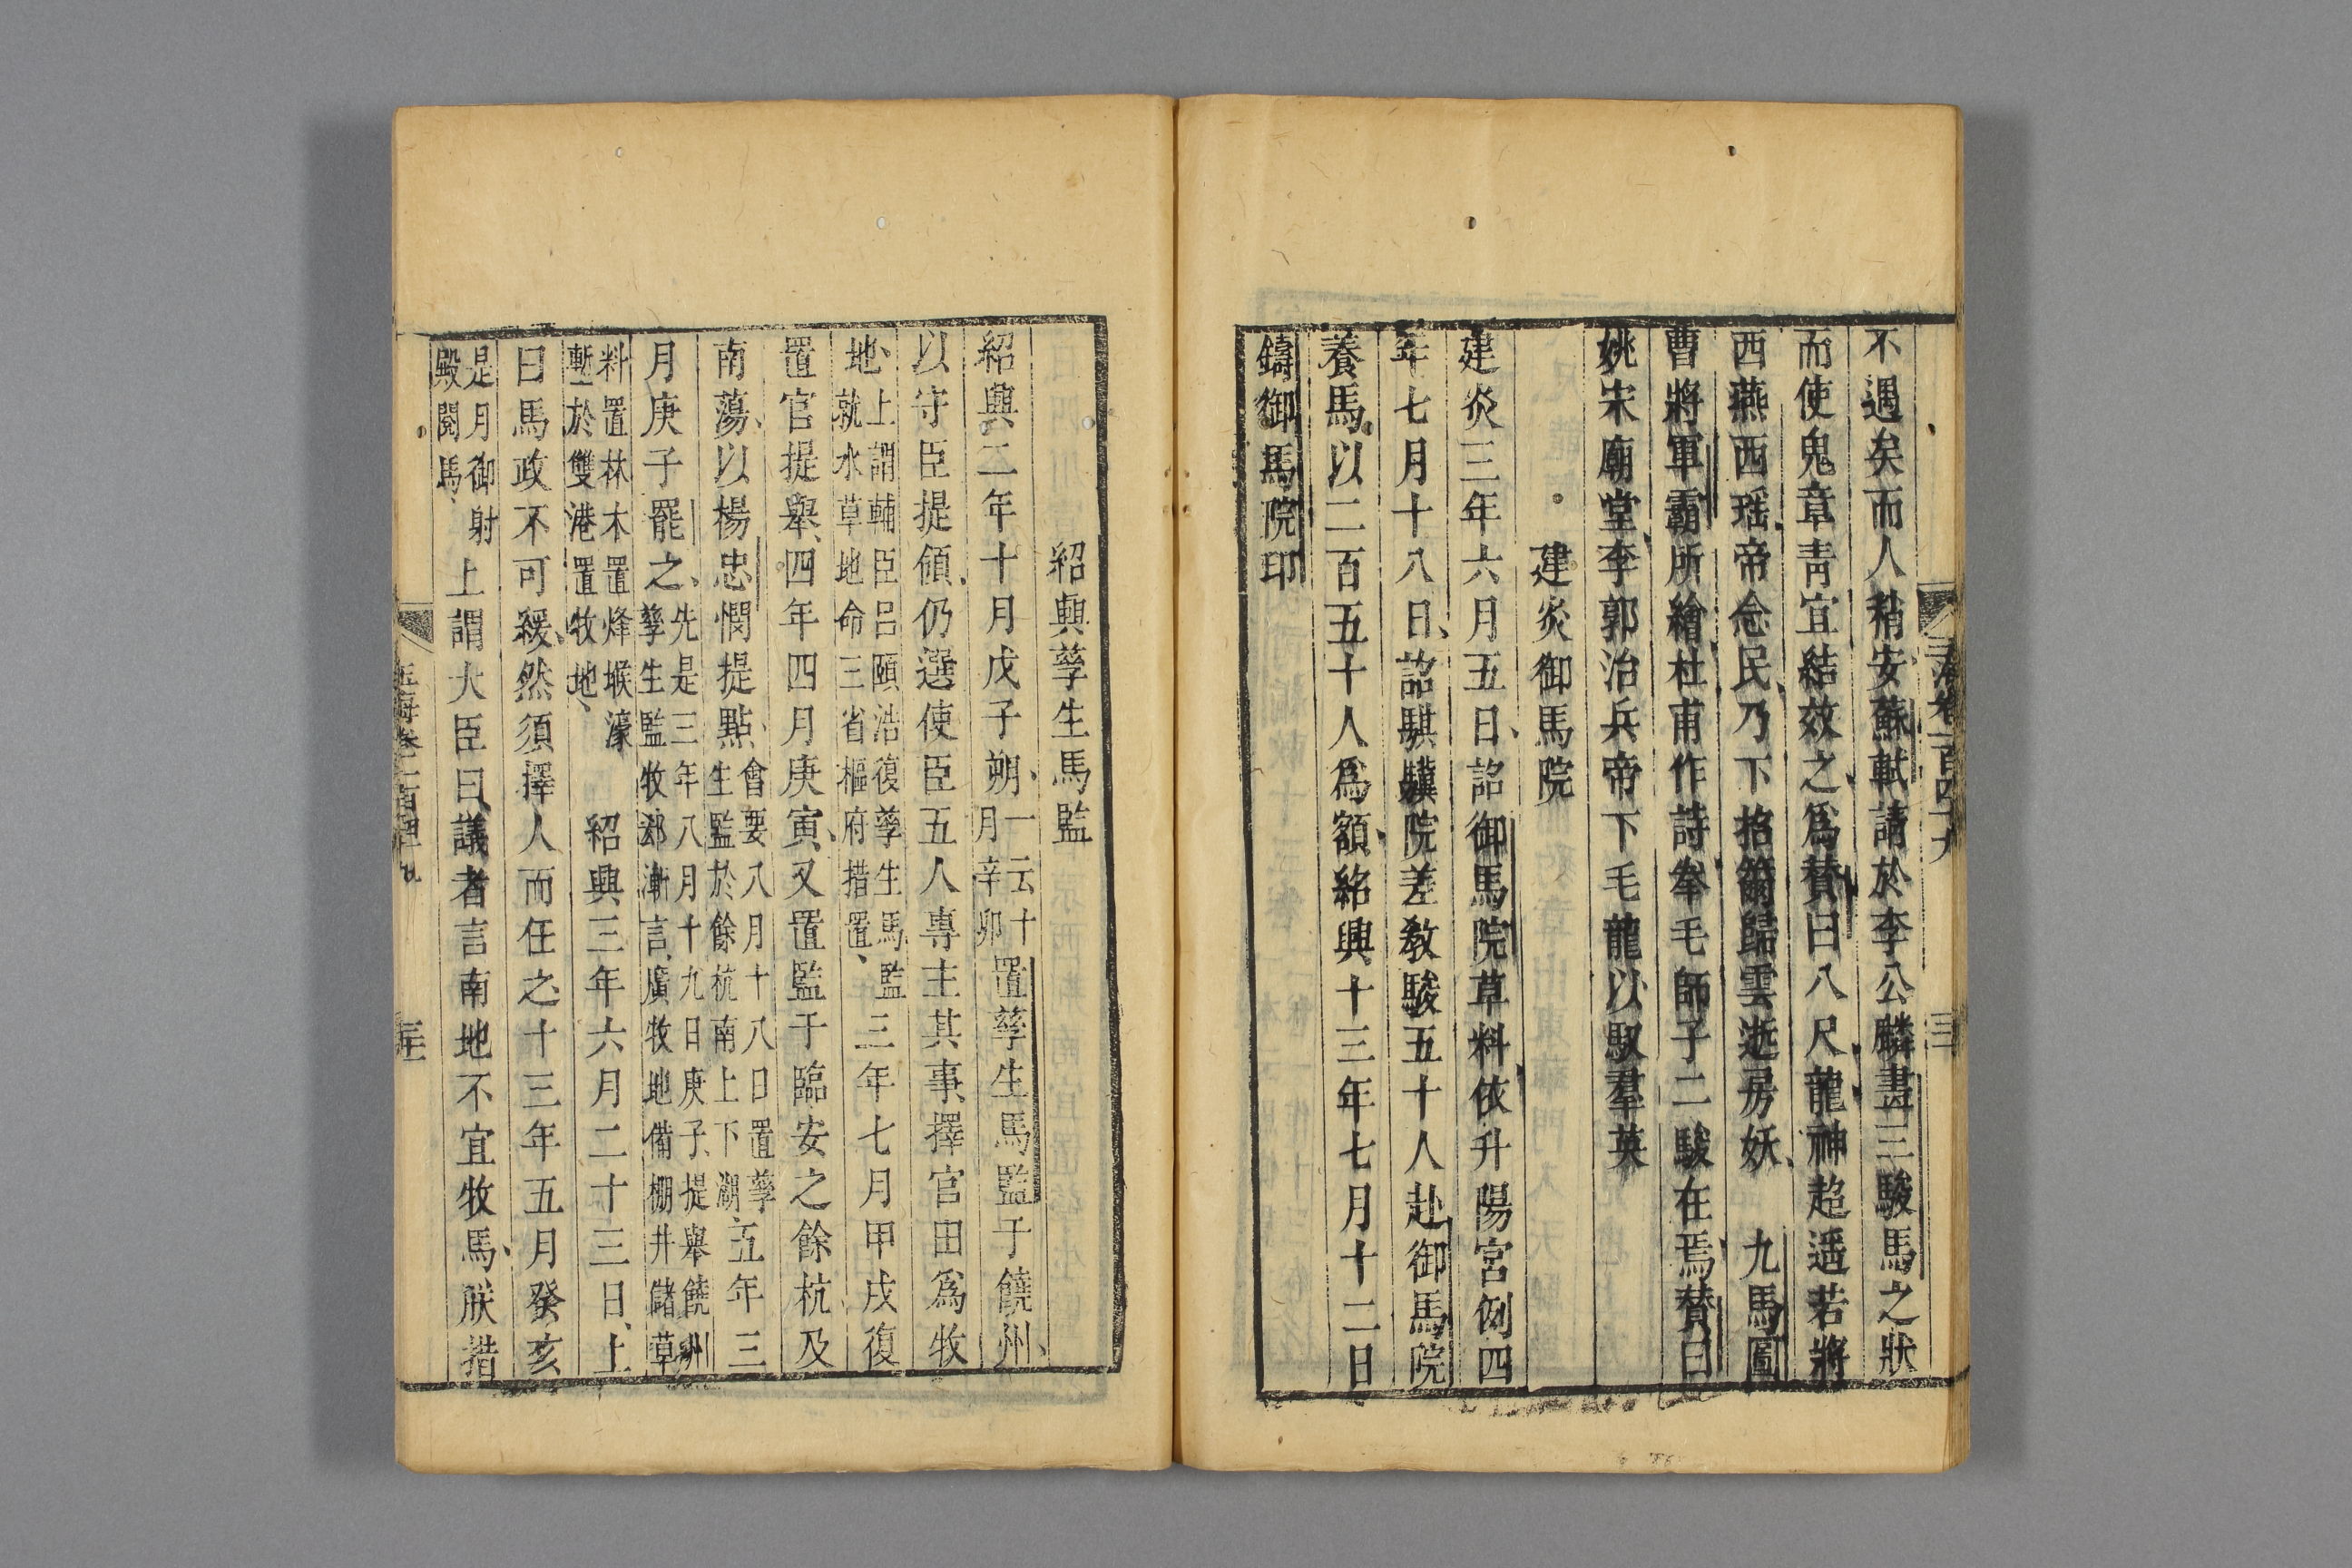 不遇矣而人稍安蘇軾請於李公麟畫三駿馬之狀
而使鬼章青宜結效之爲贊曰八尺龍神超遥若將
西燕西瑶帝念民乃下招籋歸雲逝房妖　九馬圖
曹將軍霸所繪杜甫作詩拳毛師子二駿在焉贊曰
姚宋廟堂李郭治兵帝下毛龍以馭羣英
建炎御馬院
建炎三年六月五日詔御馬院草料依升陽宮例四
年七月十八日詔騏驥院差教駿五十人赴御馬院
養馬以二百五十人爲額紹興十三年七月十二日
鑄御馬院印
紹興孳生馬監
紹興二年十月戊子朔一云十月辛卯置孳生馬監于饒州
以守臣提領仍選使臣五人專主其事擇官田爲牧
地上謂輔臣呂頤浩復孳生馬監就水草地命三省樞府措置三年七月甲戌復
置官提舉四年四月庚寅又置監于臨安之餘杭及
南蕩以楊忠憫提點會要八月十八日置孳生監於餘杭南上下湖五年三
月庚子罷之先是三年八月十九日庚子提舉饒州孳生監牧郝漸言廣牧地備棚井儲草
料置林木置烽堠濠塹於雙港置牧地　紹興三年六月二十三日上
曰馬政不可緩然須擇人而任之十三年五月癸亥
是月御射殿閱馬上謂大臣曰議者言南地不宜牧馬朕措
玉海卷一百四十九